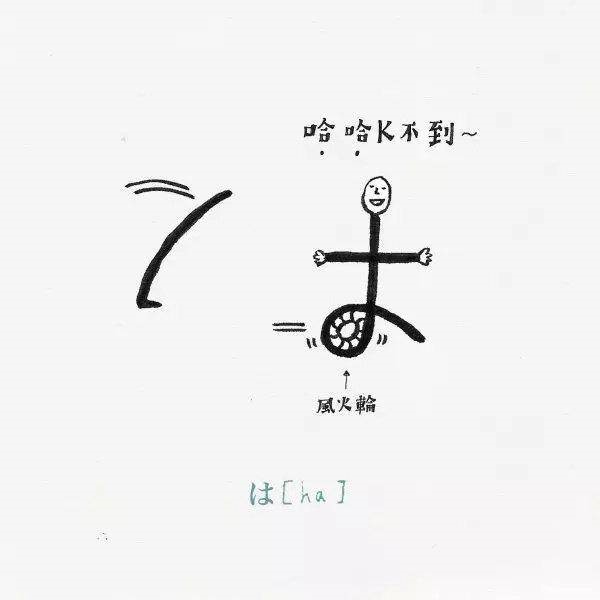 哈哈K不到~
風火輪
は[ha]